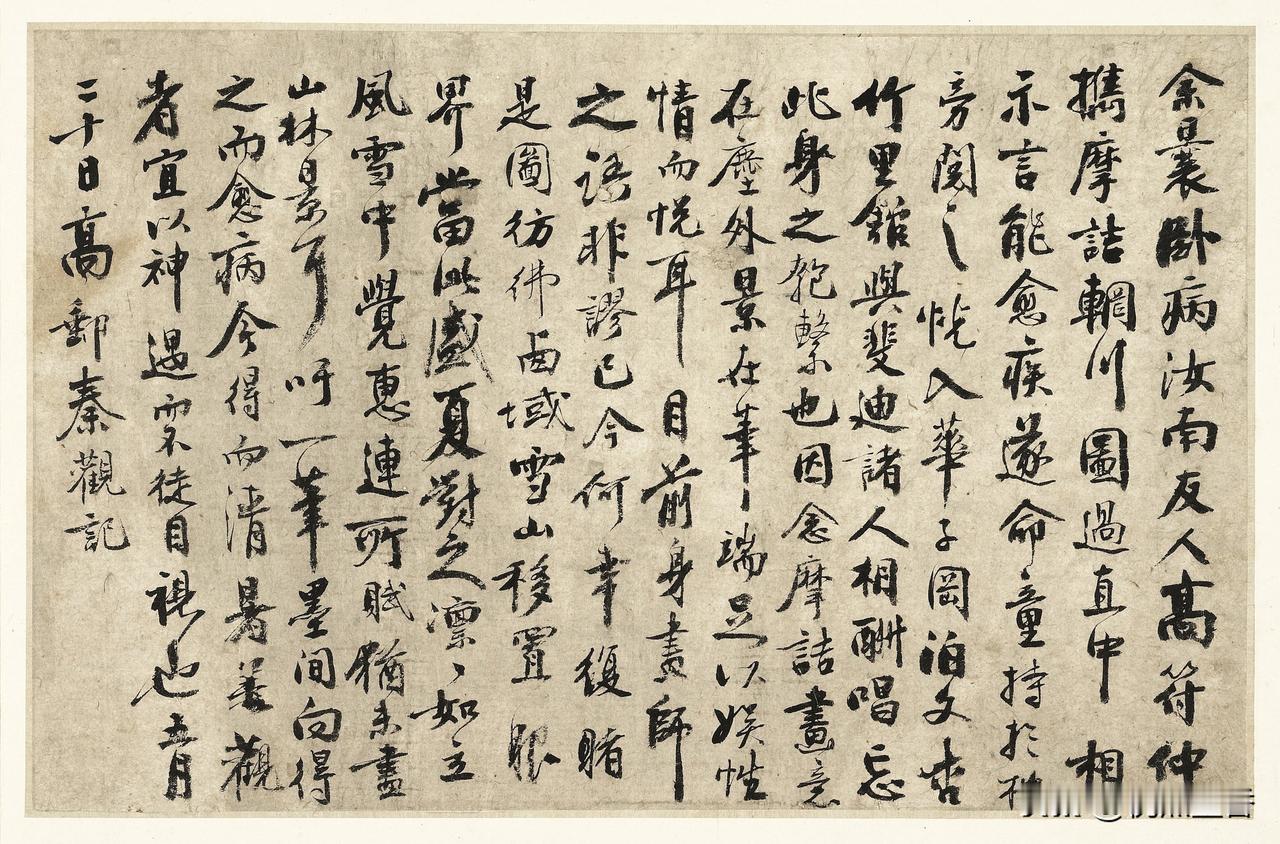 余曩卧病汝南友人高符仲
攜摩詰輞川圖過直中相
示言能愈疾遂命童持於枕
旁閱之恍入華子岡泊文杏
竹里館與斐迪諸人相酬唱忘
此身之匏繫也因念摩詰畫意
在塵外景在筆〻端足以娛性
情而悅耳目前身畫師
之語非謬已今何幸復睹
是圖彷彿西域雪山移置眼
界當此盛夏對之凛〻如立
風雪中覺惠連所賦猶未盡
山林景耳吁一筆墨間向得
之而愈病今得而清暑善觀
者宜以神遇而不徒目視也五月
二十日高郵秦觀記